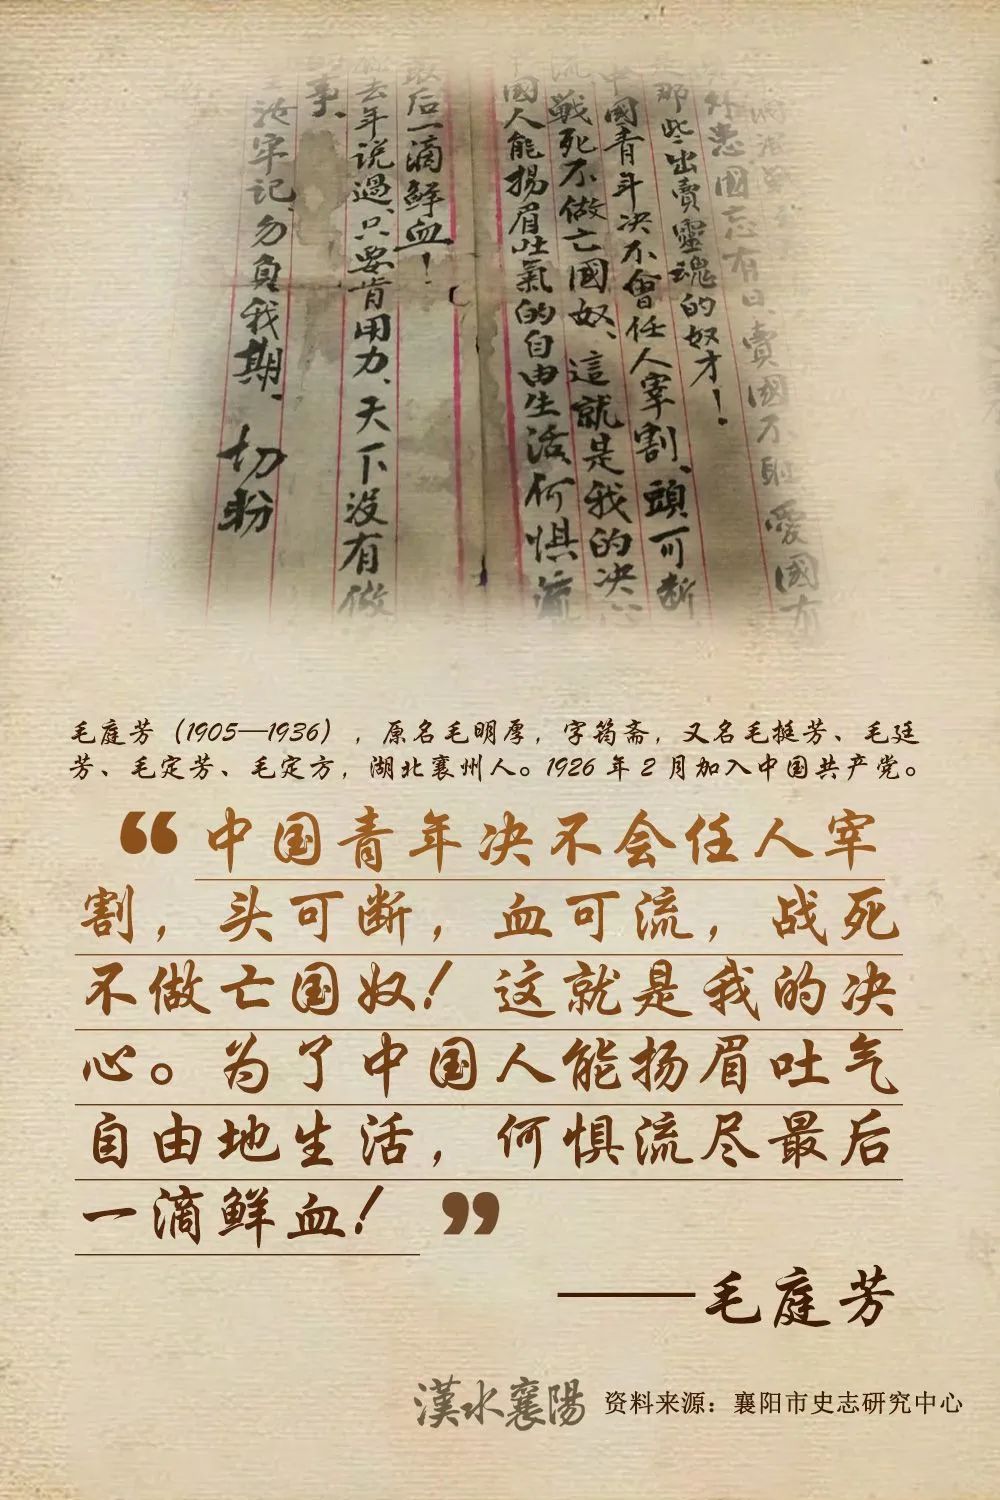 外患國忘有日、賣國不恥愛國有
那些出賣靈魂的奴才！
中國青年决不會任人宰割、頭可断
流戰死不做亡國奴、這就是我的决心
中國人能揚眉吐氣的自由生活、何惧流
最后一滴鮮血！
去年说過、只要肯用力、天下没有做
事、
汝牢记、勿負我期、切盼
毛庭芳（1905—1936），原名毛明厚，字筠斋，又名毛挺芳、毛廷
芳、毛定芳、毛定方，湖北襄州人。1926 年 2 月加入中国共产党。
“中国青年决不会任人宰
割，头可断，血可流，战死
不做亡国奴！这就是我的决
心。为了中国人能扬眉吐气
自由地生活，何惧流尽最后
一滴鲜血！”
——毛庭芳
漢水襄陽 资料来源：襄阳市史志研究中心